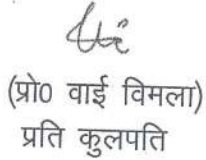 (प्रो0 वाई विमला)
प्रति कुलपति